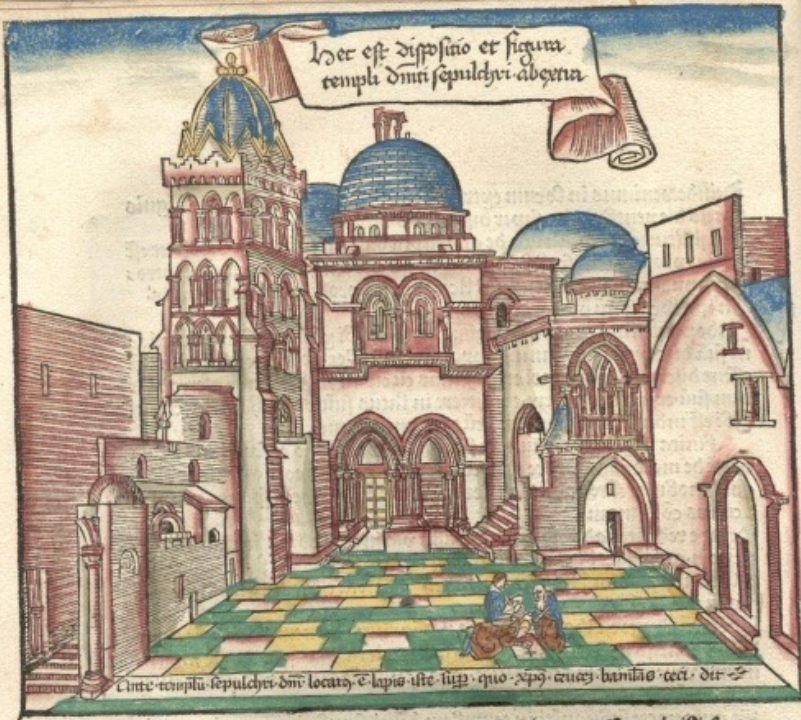 Hec est dispositio et figura
templi dm̄ti sepulchri · abextra
Ante · templū · sepulchri · dm̄ · locatꝰ · ē · lapis · iste · suꝑ · quo · xp̄ꝰ · cecidit